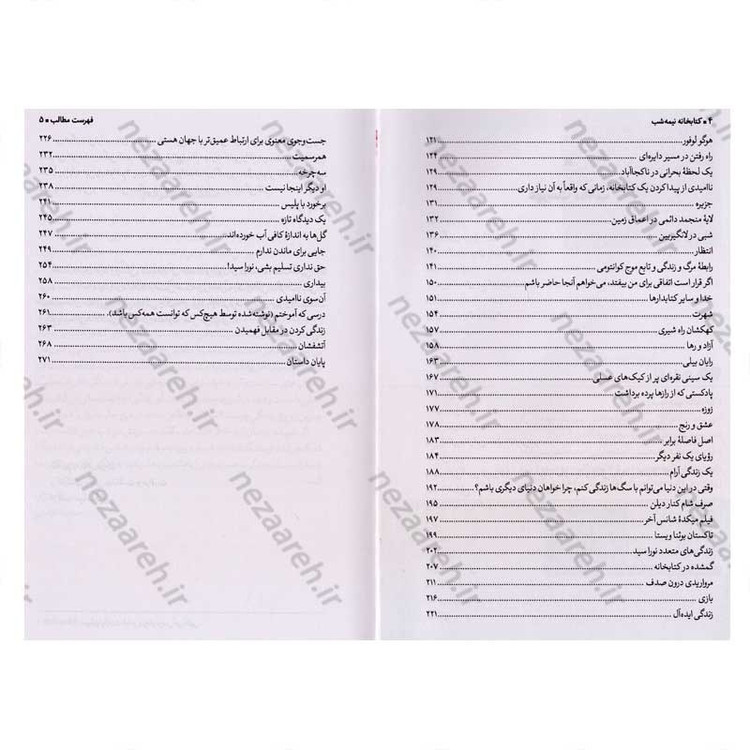 ۴ ■ کتابخانه نیمه‌شب
هوگو لوفور ۱۲۱
راه رفتن در مسیر دایره‌ای ۱۲۴
یک لحظهٔ بحرانی در ناکجاآباد ۱۲۹
ناامیدی از پیدا کردن یک کتابخانه، زمانی که واقعاً به آن نیاز داری ۱۲۹
جزیره ۱۳۱
لایهٔ منجمد دائمی در اعماق زمین ۱۳۲
شبی در لانگیربین ۱۳۶
انتظار ۱۴۰
رابطهٔ مرگ و زندگی و تابع موج کوانتومی ۱۴۱
اگر قرار است اتفاقی برای من بیفتد، می‌خواهم آنجا حاضر باشم ۱۵۰
خدا و سایر کتابدارها ۱۵۱
شهرت ۱۵۴
کهکشان راه شیری ۱۵۷
آزاد و رها ۱۵۸
رایان بیلی ۱۶۳
یک سینی نقره‌ای پر از کیک‌های عسلی ۱۶۷
پادکستی که از رازها پرده برداشت ۱۷۱
زوزه ۱۷۷
عشق و رنج ۱۷۸
اصل فاصلهٔ برابر ۱۸۳
رؤیای یک نفر دیگر ۱۸۴
یک زندگی آرام ۱۸۸
وقتی در این دنیا می‌توانم با سگ‌ها زندگی کنم، چرا خواهان دنیای دیگری باشم؟ ۱۹۲
صرف شام کنار دیلن ۱۹۵
فیلم میکدهٔ شانس آخر ۱۹۷
تاکستان بوئنا ویستا ۱۹۹
زندگی‌های متعدد نورا سید ۲۰۲
گمشده در کتابخانه ۲۰۷
مرواریدی درون صدف ۲۱۱
بازی ۲۱۶
زندگی ایده‌آل ۲۲۱
فهرست مطالب ■ ۵
جست‌وجوی معنوی برای ارتباط عمیق‌تر با جهان هستی ۲۲۶
همرسمیت ۲۳۲
سه‌چرخه ۲۳۵
او دیگر اینجا نیست ۲۳۸
برخورد با پلیس ۲۴۱
یک دیدگاه تازه ۲۴۵
گل‌ها به اندازهٔ کافی آب خورده‌اند ۲۴۷
جایی برای ماندن ندارم ۲۴۹
حق نداری تسلیم بشی، نورا سید! ۲۵۴
بیداری ۲۵۸
آن‌سوی ناامیدی ۲۶۰
درسی که آموختم (نوشته‌شده توسط هیچ‌کس که توانست همه‌کس باشد) ۲۶۱
زندگی کردن در مقابل فهمیدن ۲۶۳
آتشفشان ۲۶۸
پایان داستان ۲۷۱
nezaareh.ir